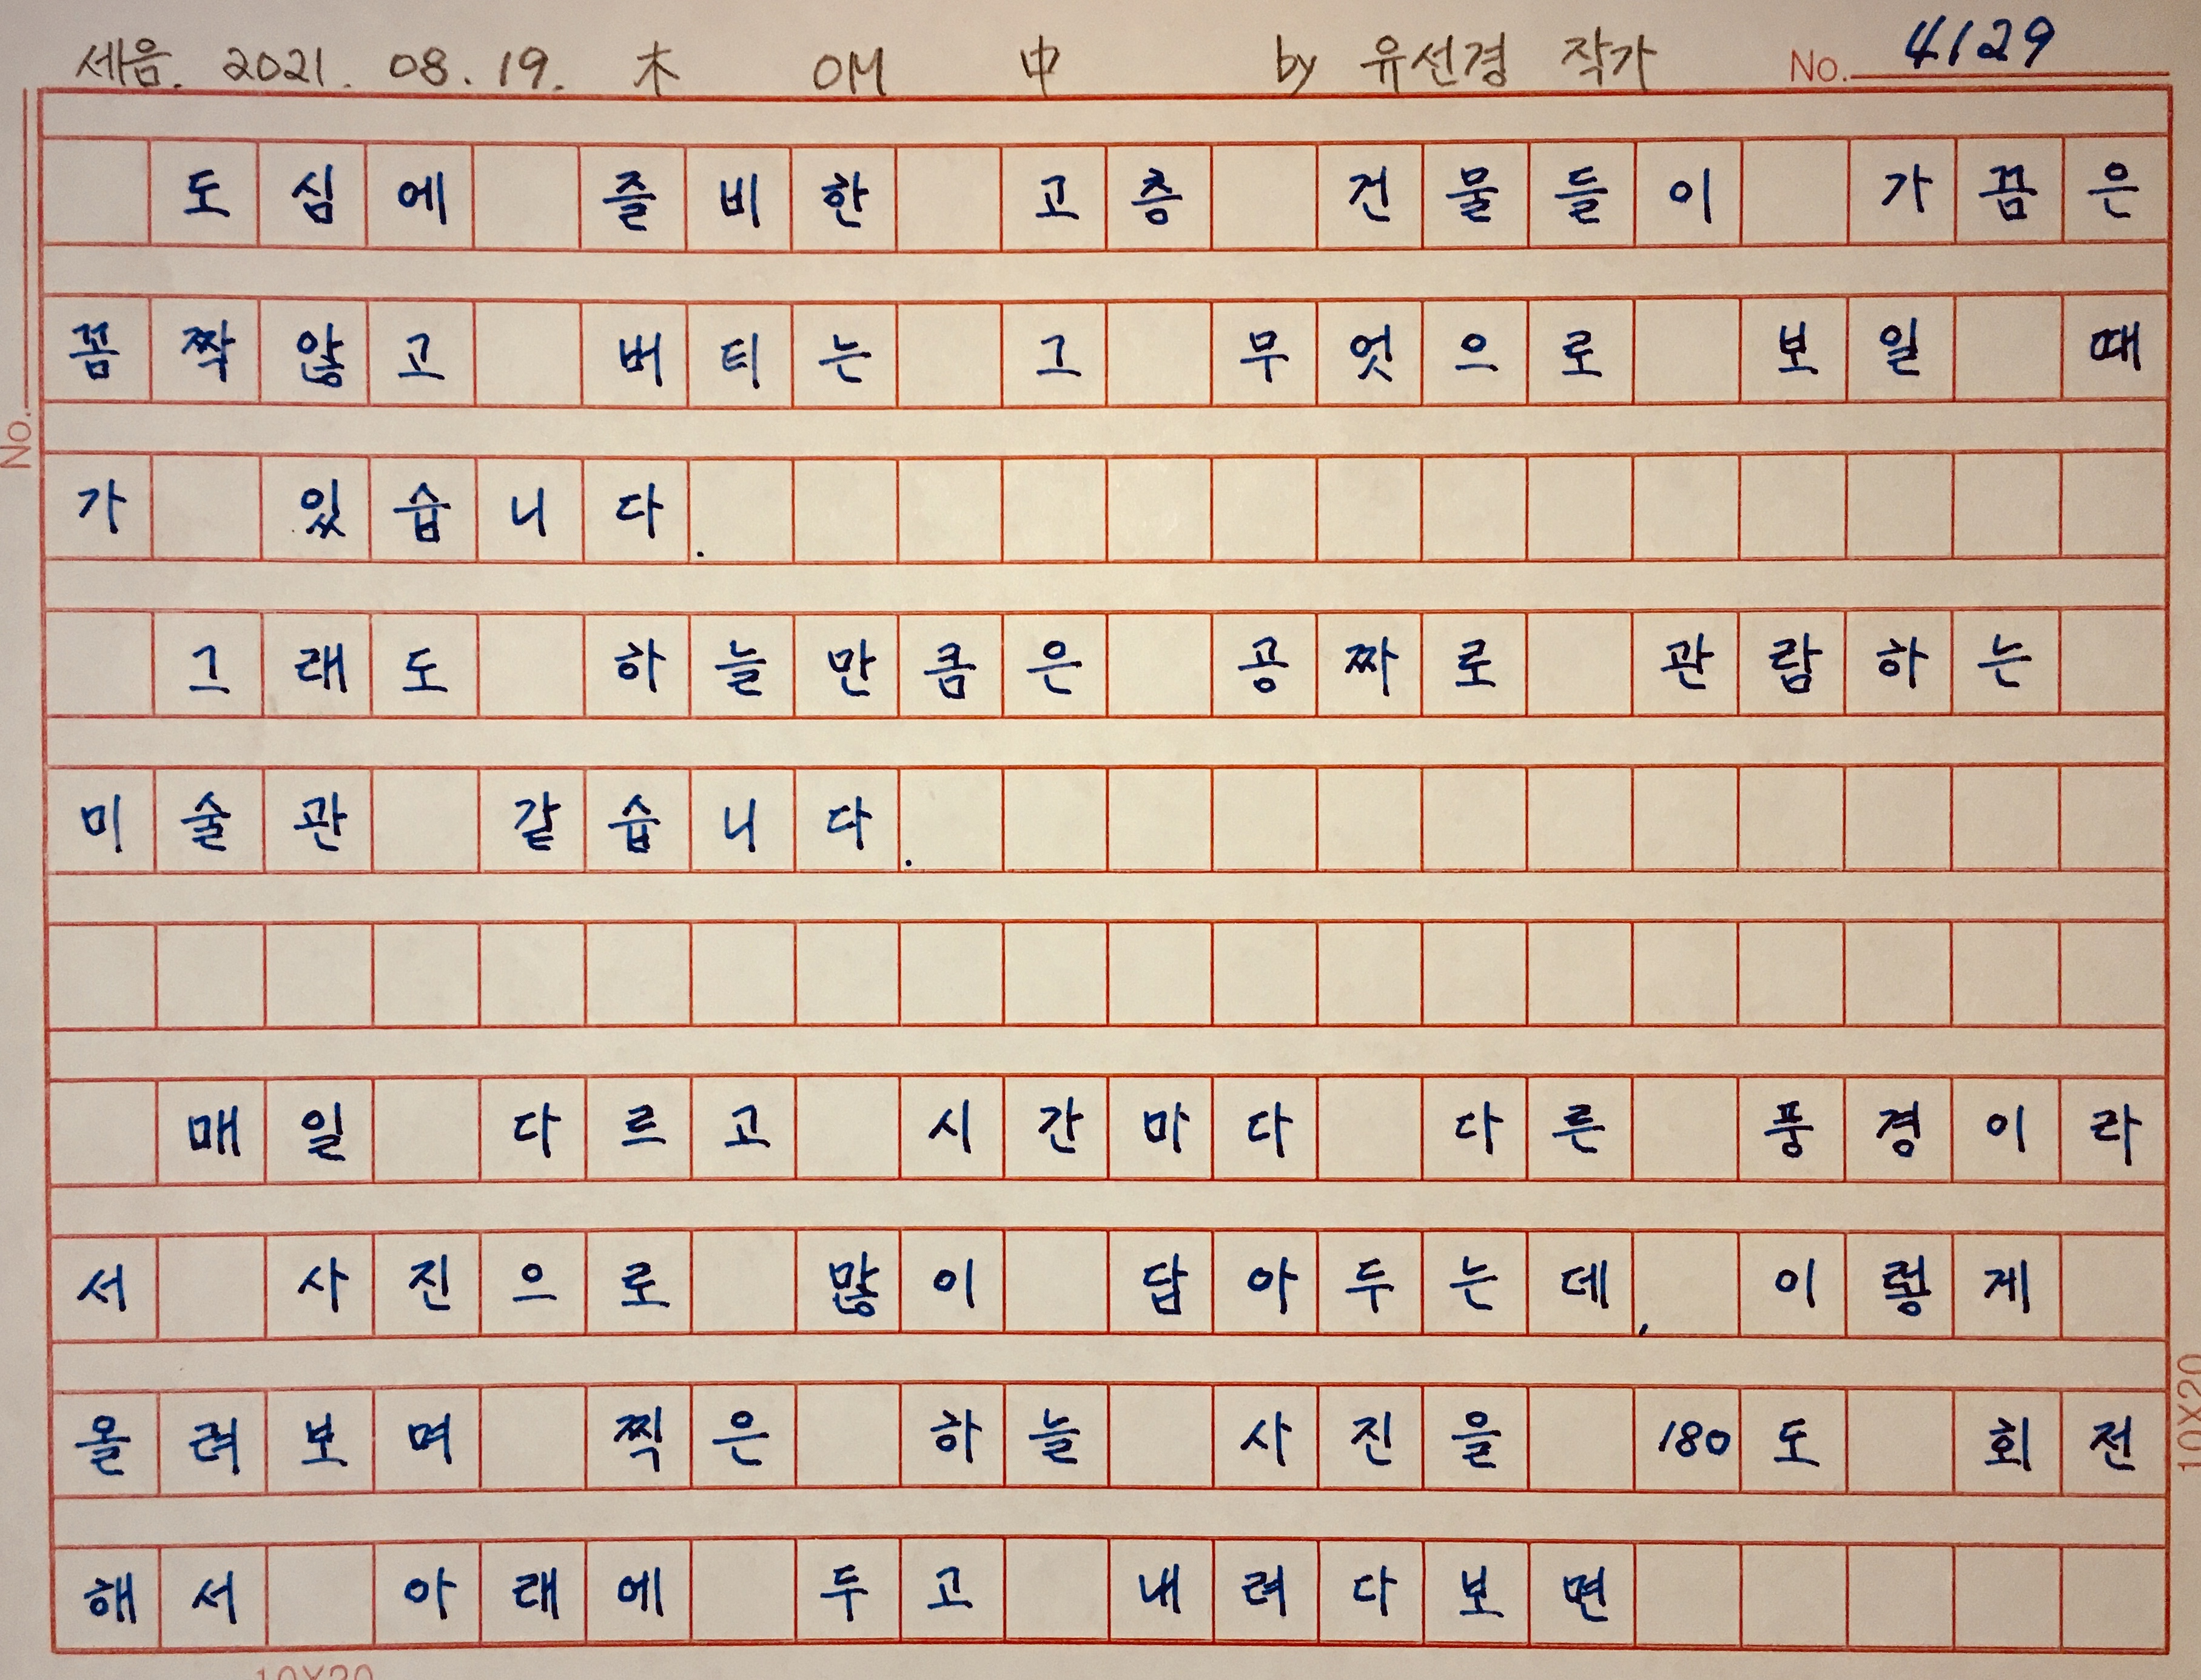 세음. 2021. 08. 19. 木 OM 中 by 유선경 작가 No. 4129
도심에 즐비한 고층 건물들이 가끔은
꼼짝않고 버티는 그 무엇으로 보일 때
No.
가 있습니다.
그래도 하늘만큼은 공짜로 관람하는
미술관 같습니다.
매일 다르고 시간마다 다른 풍경이라
서 사진으로 많이 담아두는데, 이렇게
올려보며 찍은 하늘 사진을 180도 회전
10X20
해서 아래에 두고 내려다보면
10X20